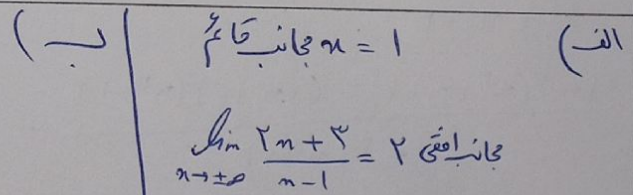 الف) x = 1 مجانب قائم
lim x→±∞ (۲x + ۳)/(x - 1) = ۲ مجانب افقی
ب)